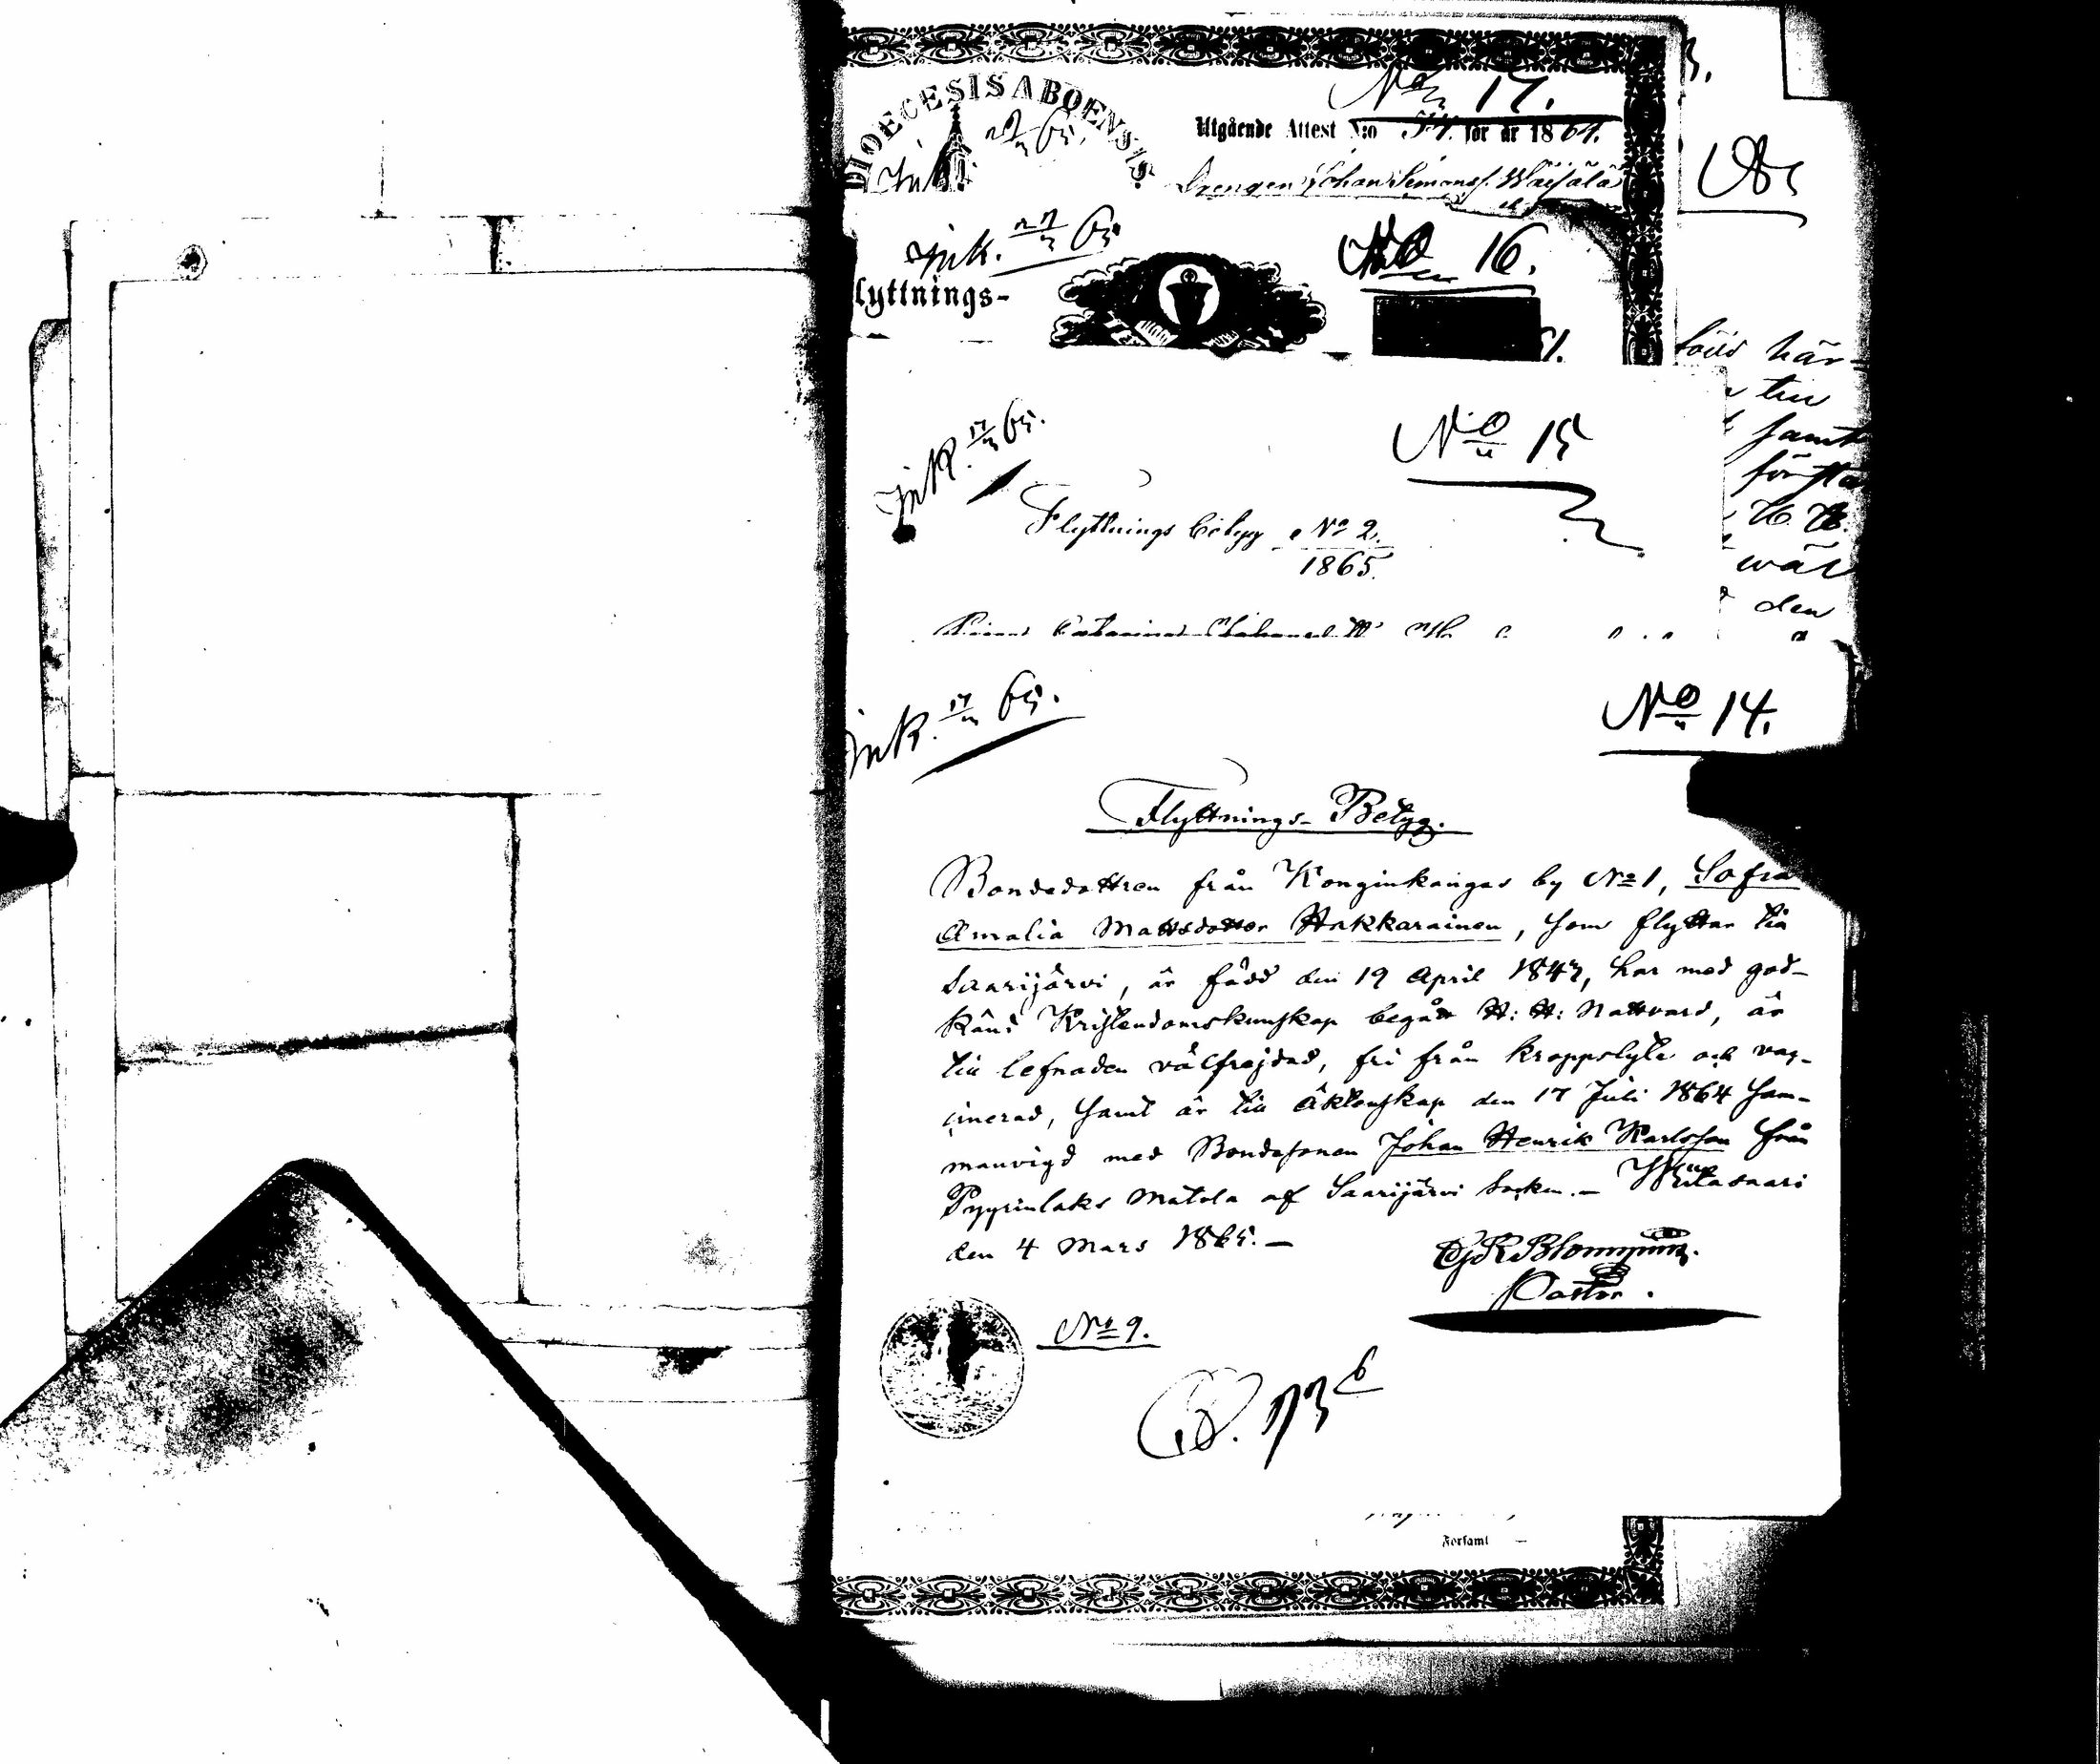 DIOECESIS ABOENSIS
No 17.
Utgående Attest N:o 54. för år 1864.
Drengen Johan Simonss. Waisälä
Ink. 27/3 65
No 16.
lyttnings-
Ink. 17/3 65.
No 15
Flyttnings betyg No 2.
1865.
född här-
till
samt
första
wäl
den
Ink. 17/3 65.
No 14.
Flyttnings-Betyg.
Bondedottren från Konginkangas by No 1, Sofia
Amalia Mattsdotter Hakkarainen, som flyttar till
Saarijärvi, är född den 19 April 1847, har med god-
känd Kristendomskunskap begått H: H: Nattvard, är
till lefnaden välfrejdad, fri från kroppslyte och vac-
cinerad, samt är till Äktenskap den 17 Juli 1864 sam-
manvigd med Bondesonen Johan Henrik Karlsson från
Pyyrinlaks Matola af Saarijärvi Socken. — Wiitasaari
den 4 Mars 1865. —
Pastor.
No 9.
Forsaml